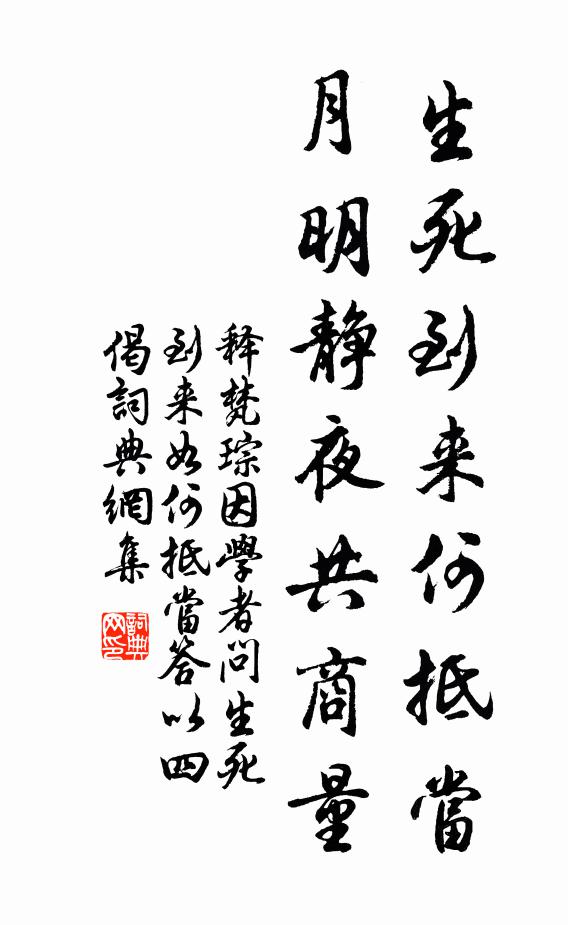 生死到来何抵當
月明靜夜共商量
释梵琮因學者問生死
到来如何抵當答以四
偈詞典網集
詞典网印